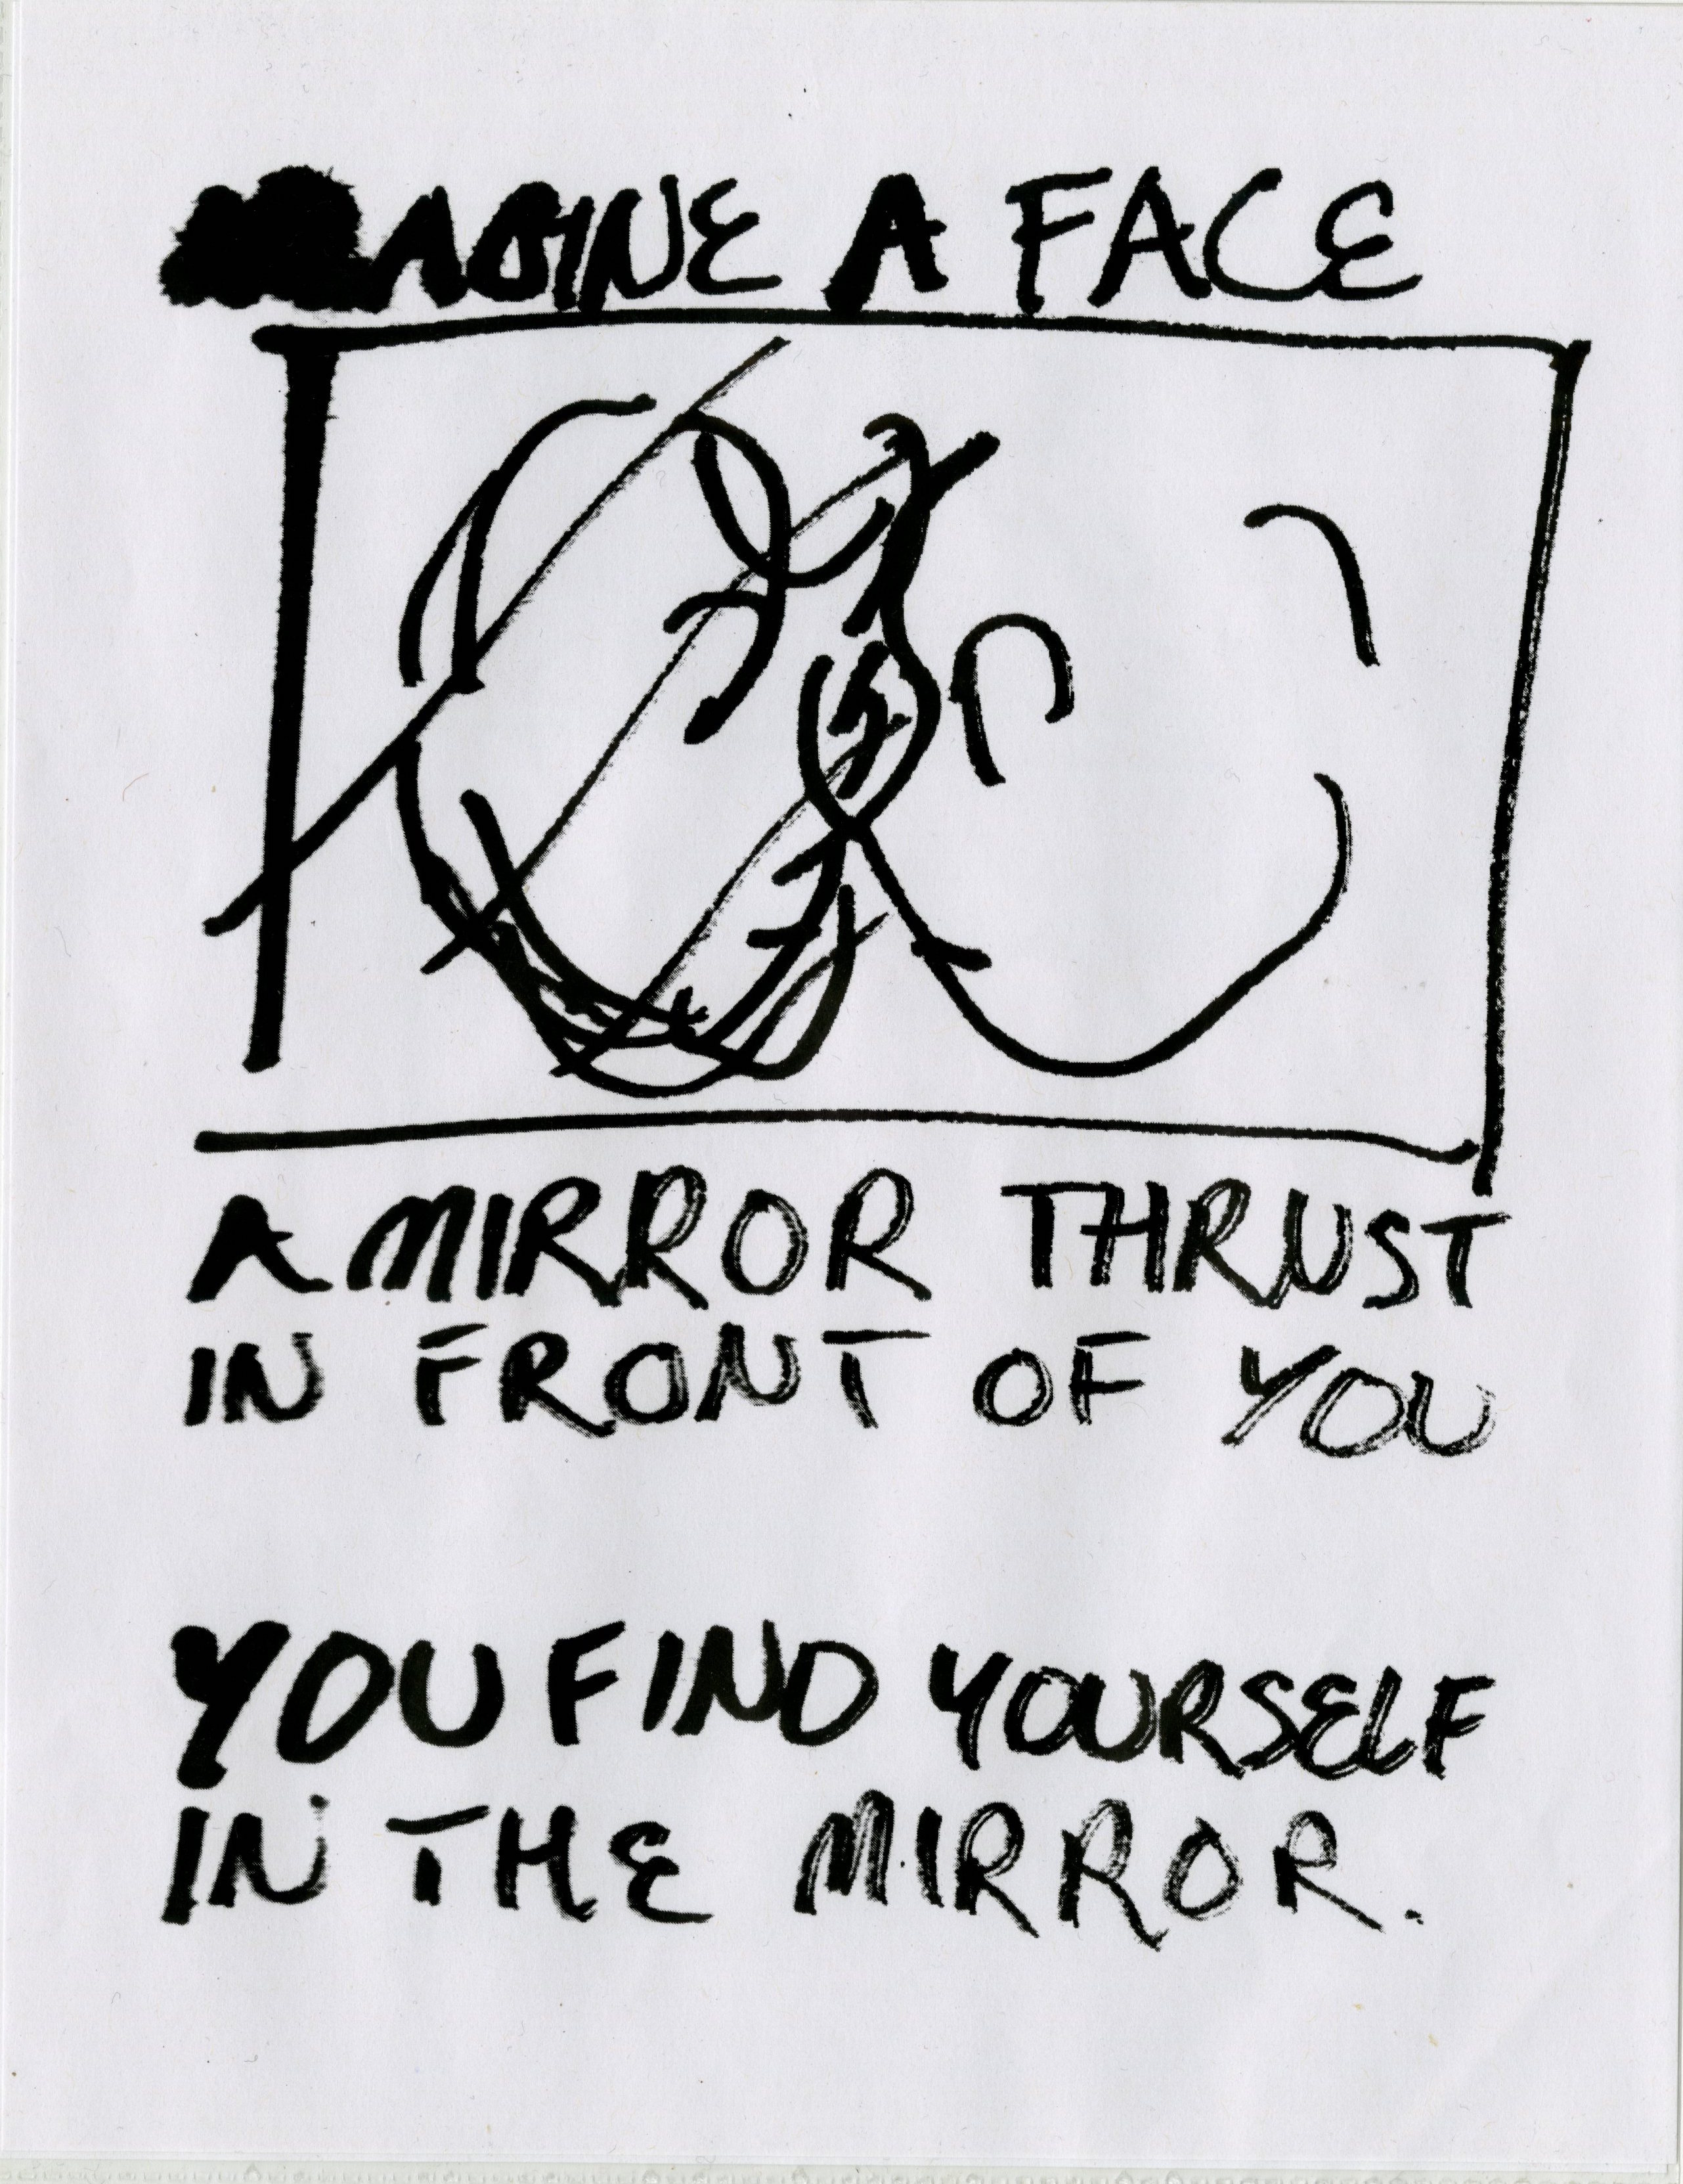 AGINE A FACE
A MIRROR THRUST
IN FRONT OF YOU
YOU FIND YOURSELF
IN THE MIRROR.